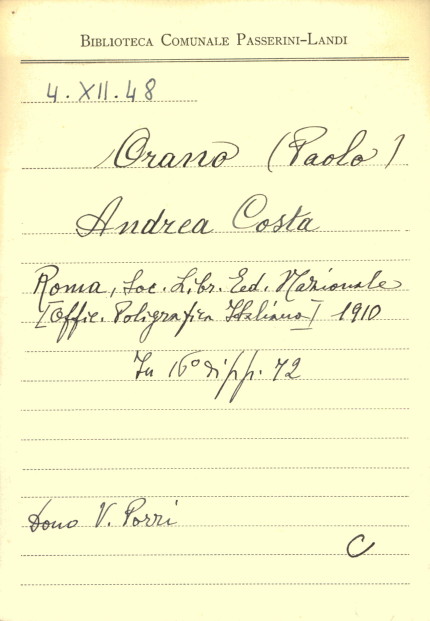 BIBLIOTECA COMUNALE PASSERINI-LANDI
4. XII. 48
Orano (Paolo)
Andrea Costa
Roma, Soc. Libr. Ed. Nazionale
[Offic. Poligrafica Italiana] 1910
In 16º di pp. 72
Dono V. Porri
C